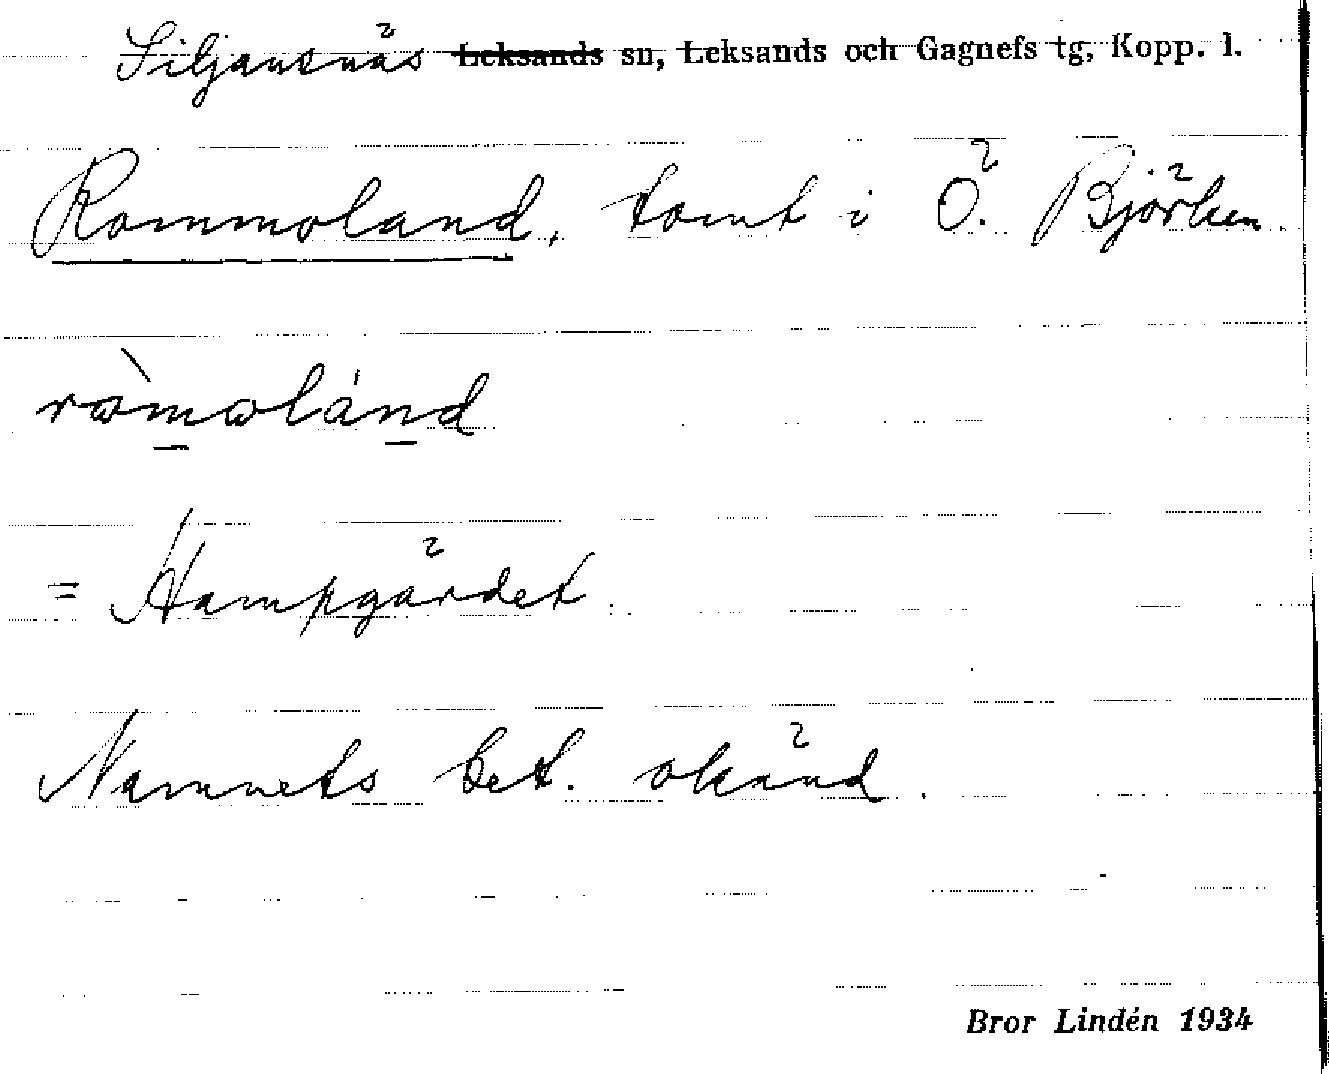 Siljansnäs Leksands sn, Leksands och Gagnefs tg, Kopp. l.
Rommoland, tomt i Ö. Björken.
ròmoland
= Hampgärdet.
Namnets bet. okänd.
Bror Lindén 1934